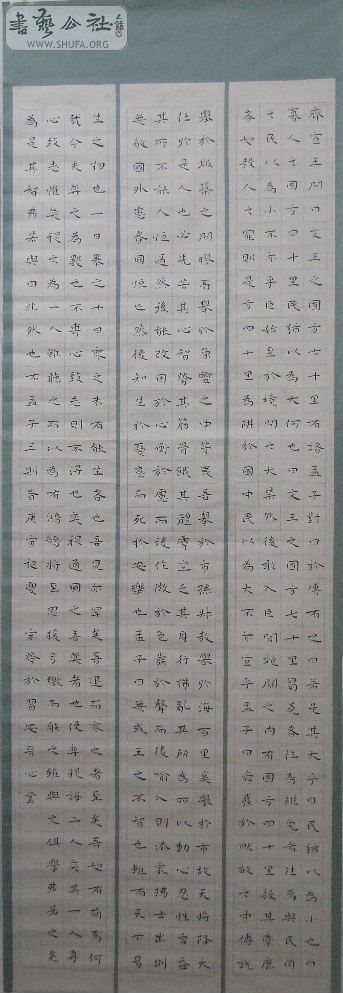 書藝公社
WWW.SHUFA.ORG
齊宣王問曰文王之囿方七十里有諸孟子對曰於傳有之曰若是其大乎曰民猶以為小也曰
寡人之囿方四十里民猶以為大何也曰文王之囿方七十里芻蕘者往焉雉兔者往焉與民同
之民以為小不亦宜乎臣始至於境問國之大禁然後敢入臣聞郊關之內有囿方四十里殺其麋鹿
者如殺人之罪則是方四十里為阱於國中民以為大不亦宜乎孟子曰舜發於畎畝之中傅說
舉於版築之間膠鬲舉於魚鹽之中管夷吾舉於士孫叔敖舉於海百里奚舉於市故天將降大
任於是人也必先苦其心智勞其筋骨餓其體膚空乏其身行拂亂其所為所以動心忍性曾益
其所不能人恒過然後能改困於心衡於慮而後作徵於色發於聲而後喻入則無法家拂士出則
無敵國外患者國恒亡然後知生於憂患而死於安樂也孟子曰無或乎王之不智也雖有天下易
生之物也一日暴之十日寒之未有能生者也吾見亦罕矣吾退而寒之者至矣吾如有萌焉何
哉今夫弈之為數小數也不專心致志則不得也弈秋通國之善弈者也使弈秋誨二人弈其一人專
心致志惟弈秋之為聽一人雖聽之一心以為有鴻鵠將至思援弓繳而射之雖與之俱學弗若之矣
為是其智弗若與曰非然也右孟子三則